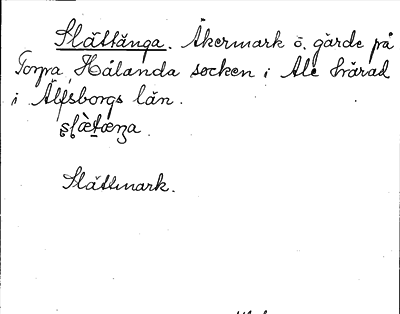 Slättänga. Åkermark o. gärde på
Torpa, Hålanda socken i Ale härad
i Älfsborgs län.
Slättmark.